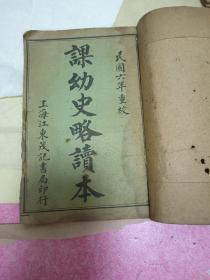 民國六年重校
課幼史略讀本
上海江東茂記書局印行